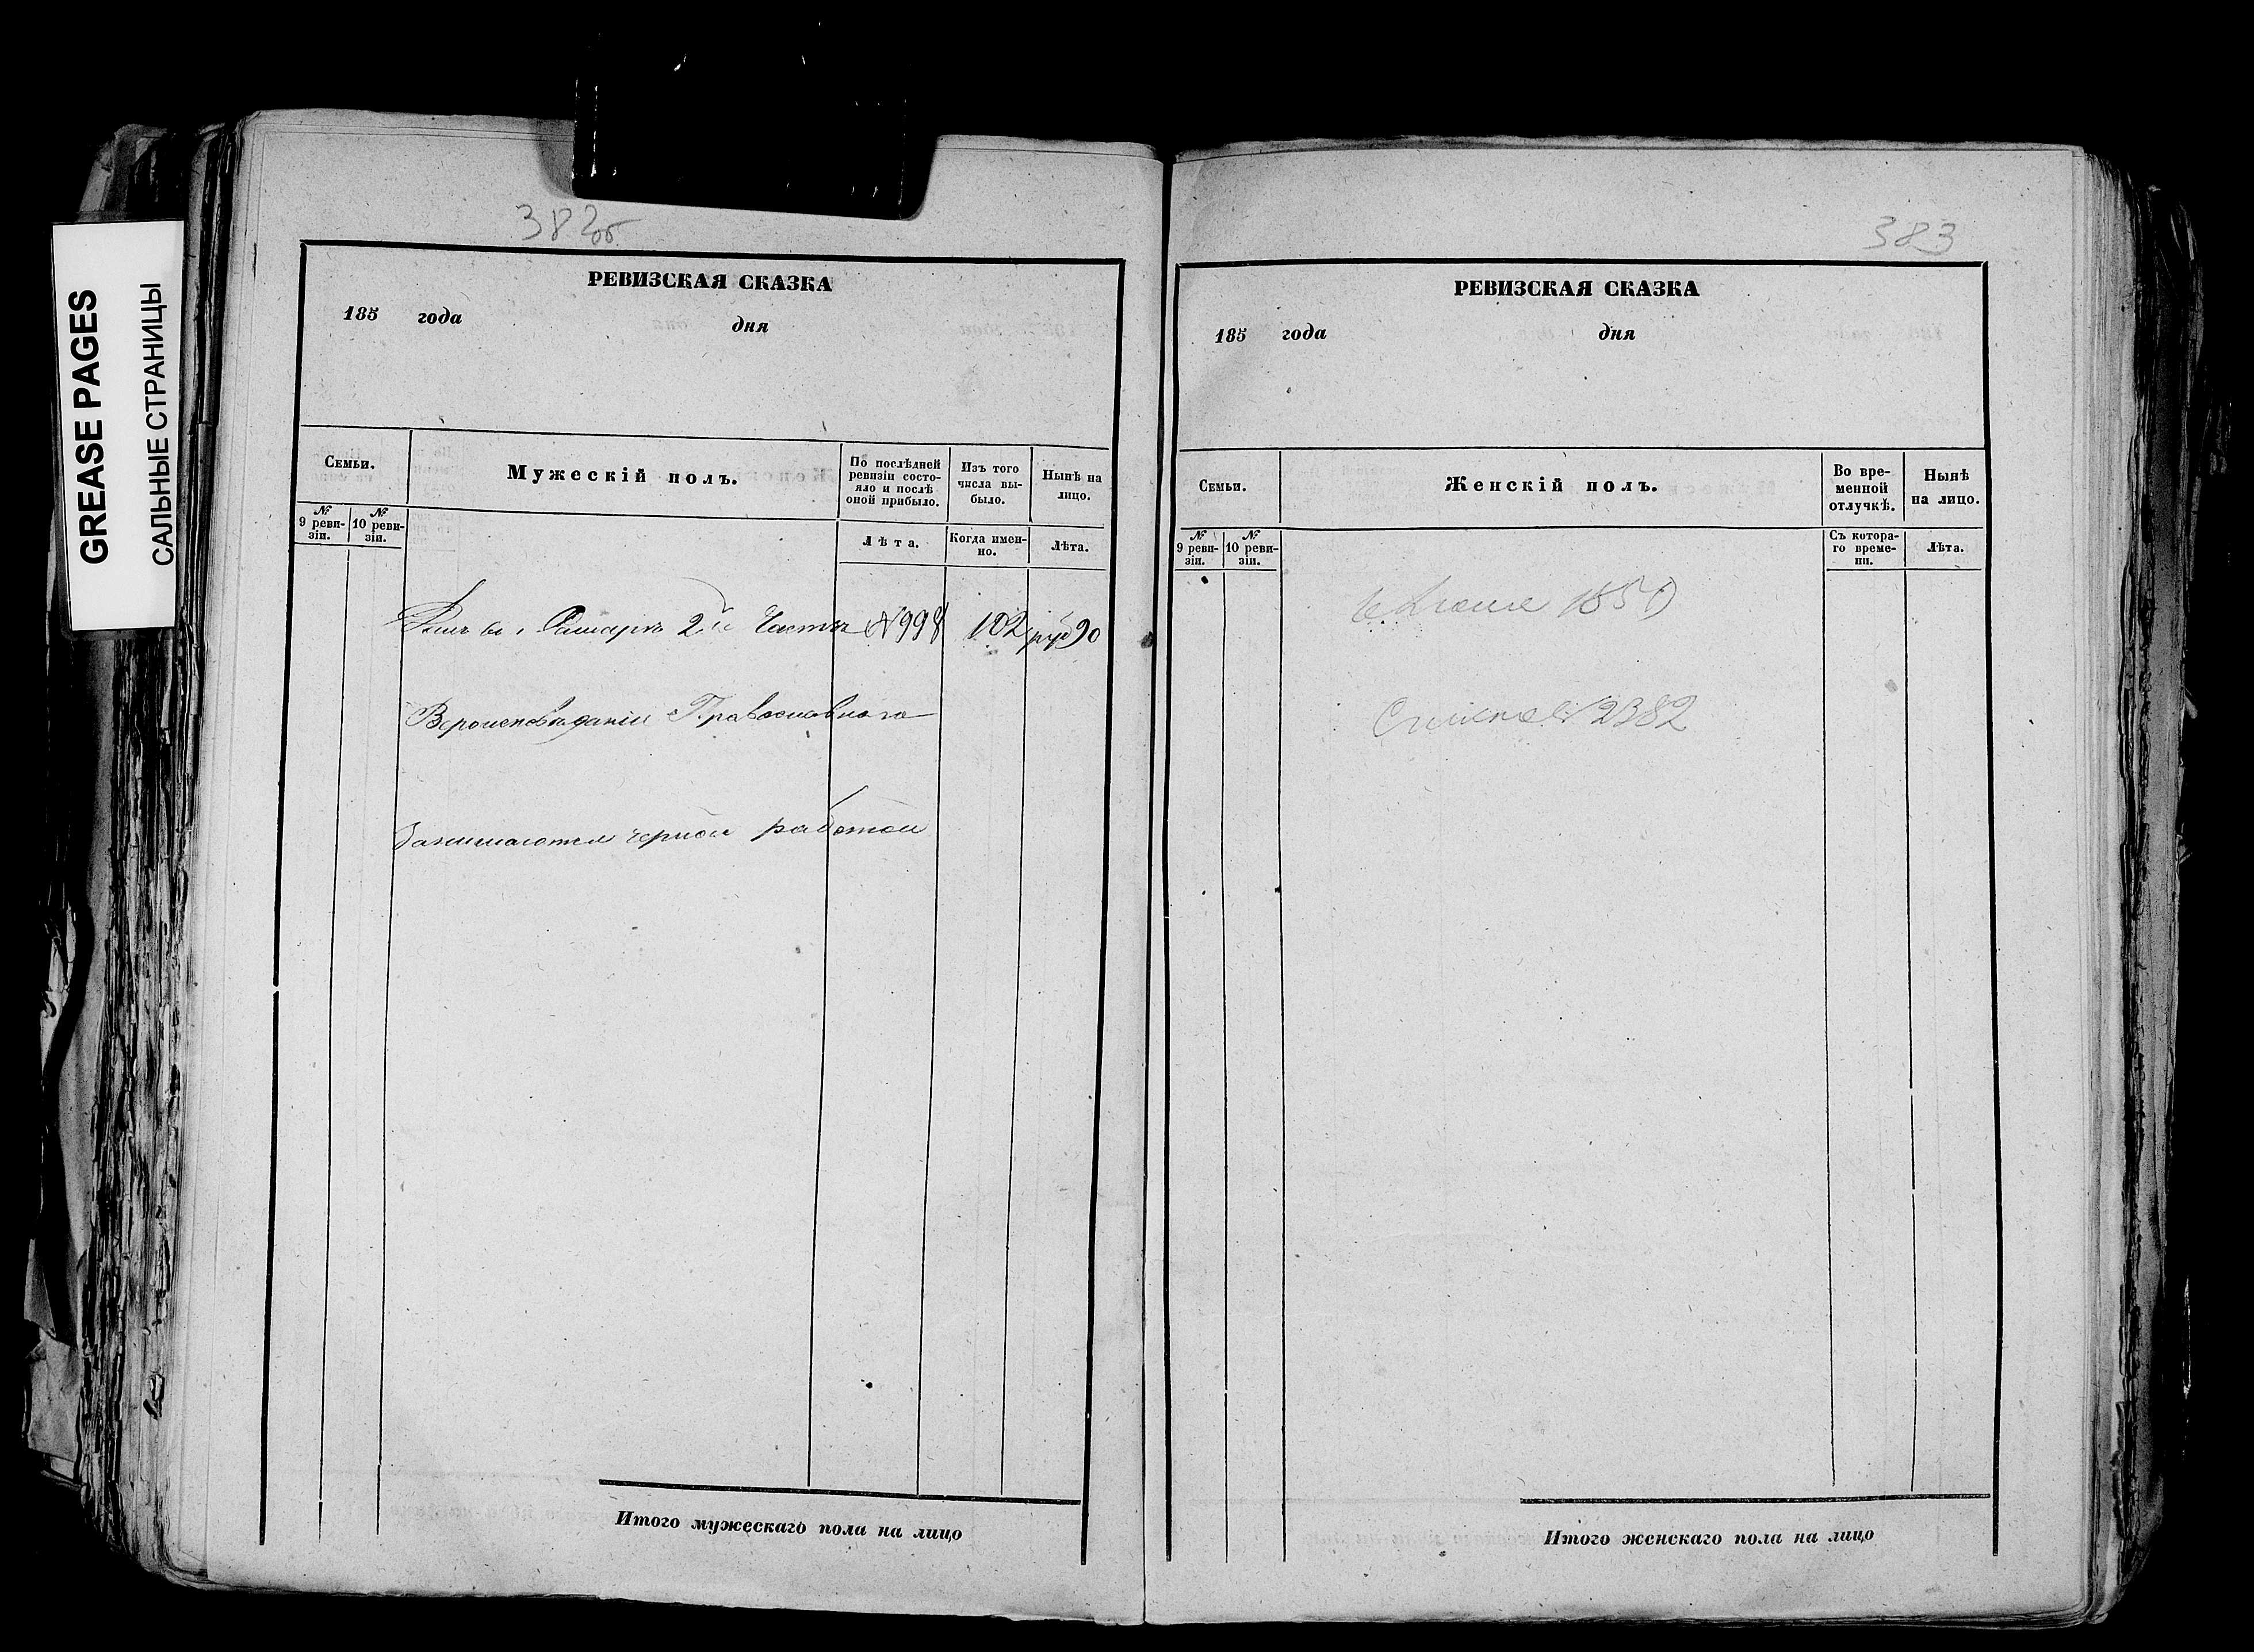 GREASE PAGES
САЛЬНЫЕ СТРАНИЦЫ
382об
РЕВИЗСКАЯ СКАЗКА
185 года дня
Семьи.
Мужескій полъ.
По послѣдней
ревизіи состо-
яло и послѣ
оной прибыло.
Изъ того
числа вы-
было.
Нынѣ на
лицо.
№
9 реви-
зіи.
№
10 реви-
зіи.
Лѣта.
Когда имен-
но.
Лѣта.
Самарѣ 2й Части №998 102 руб 90
Вероисповѣданія Православнаго
Занимаются черной работой
Итого мужескаго пола на лицо
383
РЕВИЗСКАЯ СКАЗКА
185 года дня
Семьи.
Женскій полъ.
Во вре-
менной
отлучкѣ.
Нынѣ
на лицо.
№
9 реви-
зіи.
№
10 реви-
зіи.
Съ котора-
го време-
ни.
Лѣта.
1850
№ 2382
Итого женскаго пола на лицо